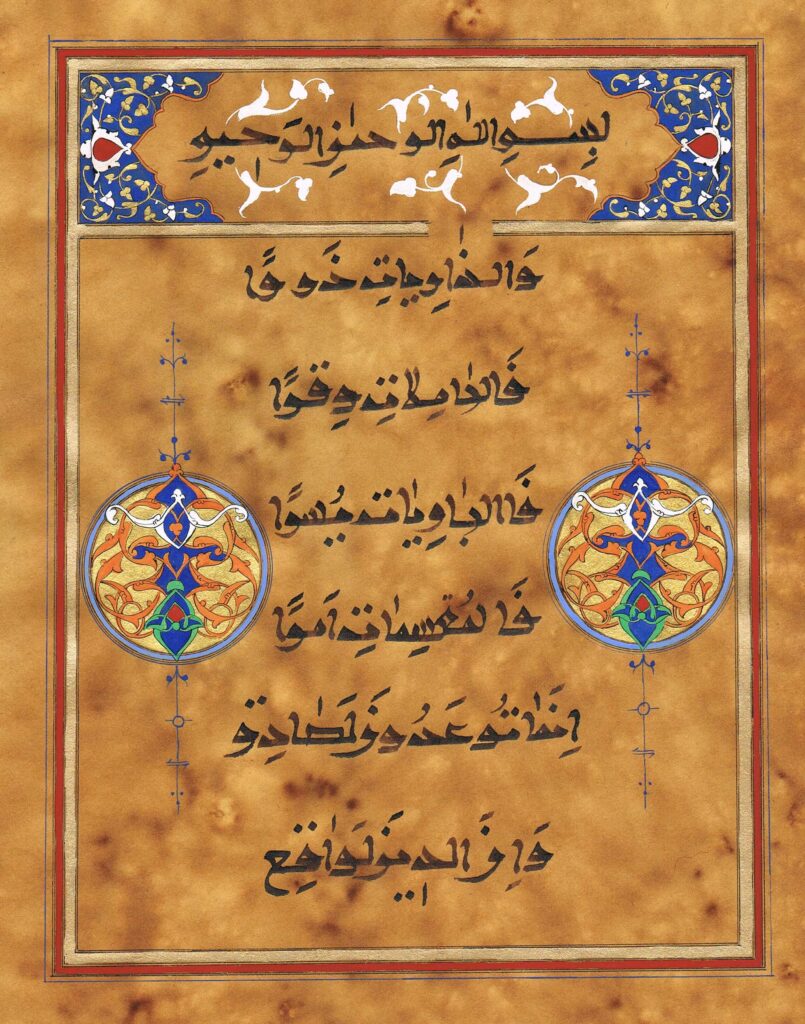 بِسمِ اللهِ الرحمٰنِ الرَحيمِ
وَالذٰارِياتِ ذَروًا
فَالحٰامِلاتِ وِقرًا
فَالجٰارِيٰاتِ يُسرًا
فَالمُقَسِمٰاتِ اَمرًا
اِنَمٰا تُوعَدُونَ لَصٰادِق
وَاِنَ الدينَ لَوٰاقِع